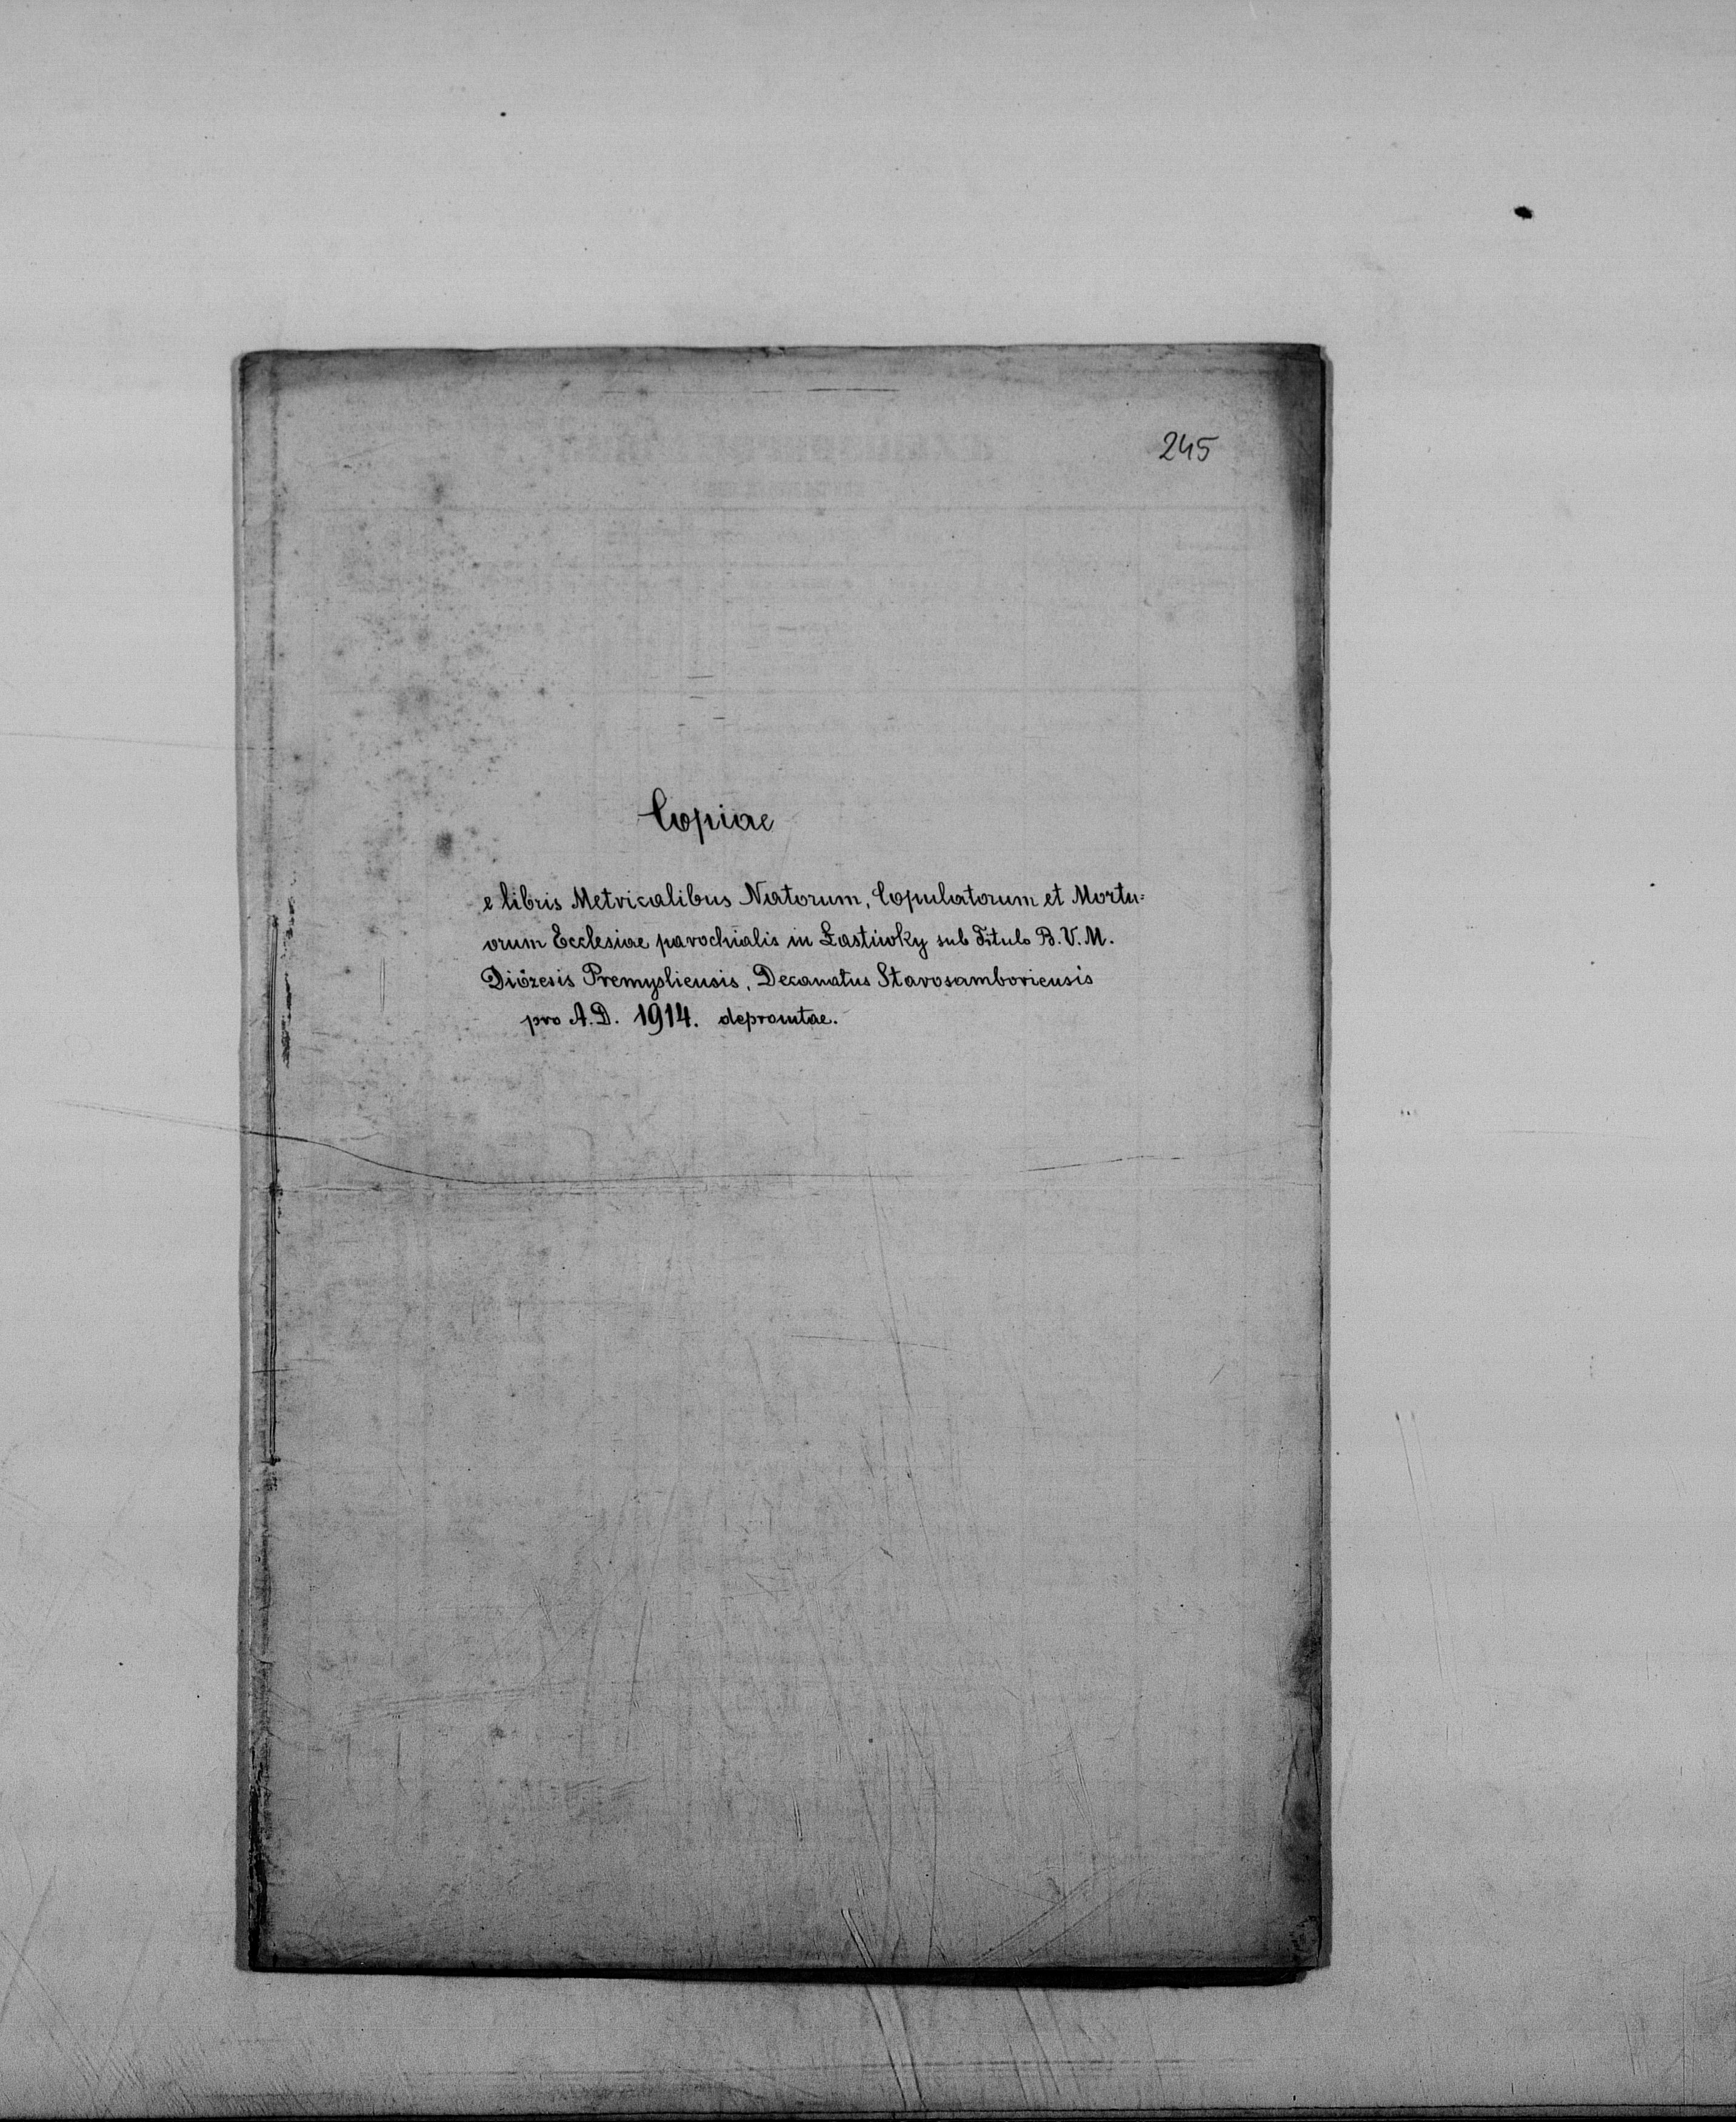 245
Copiae
e libris Metricalibus Natorum, Copulatorum et Mortu=
orum Ecclesiae parochialis in Łastiwky sub Titulo B. V. M.
Diözesis Premysliensis, Decanatus Starosamboriensis
pro A. D. 1914. depromtae.